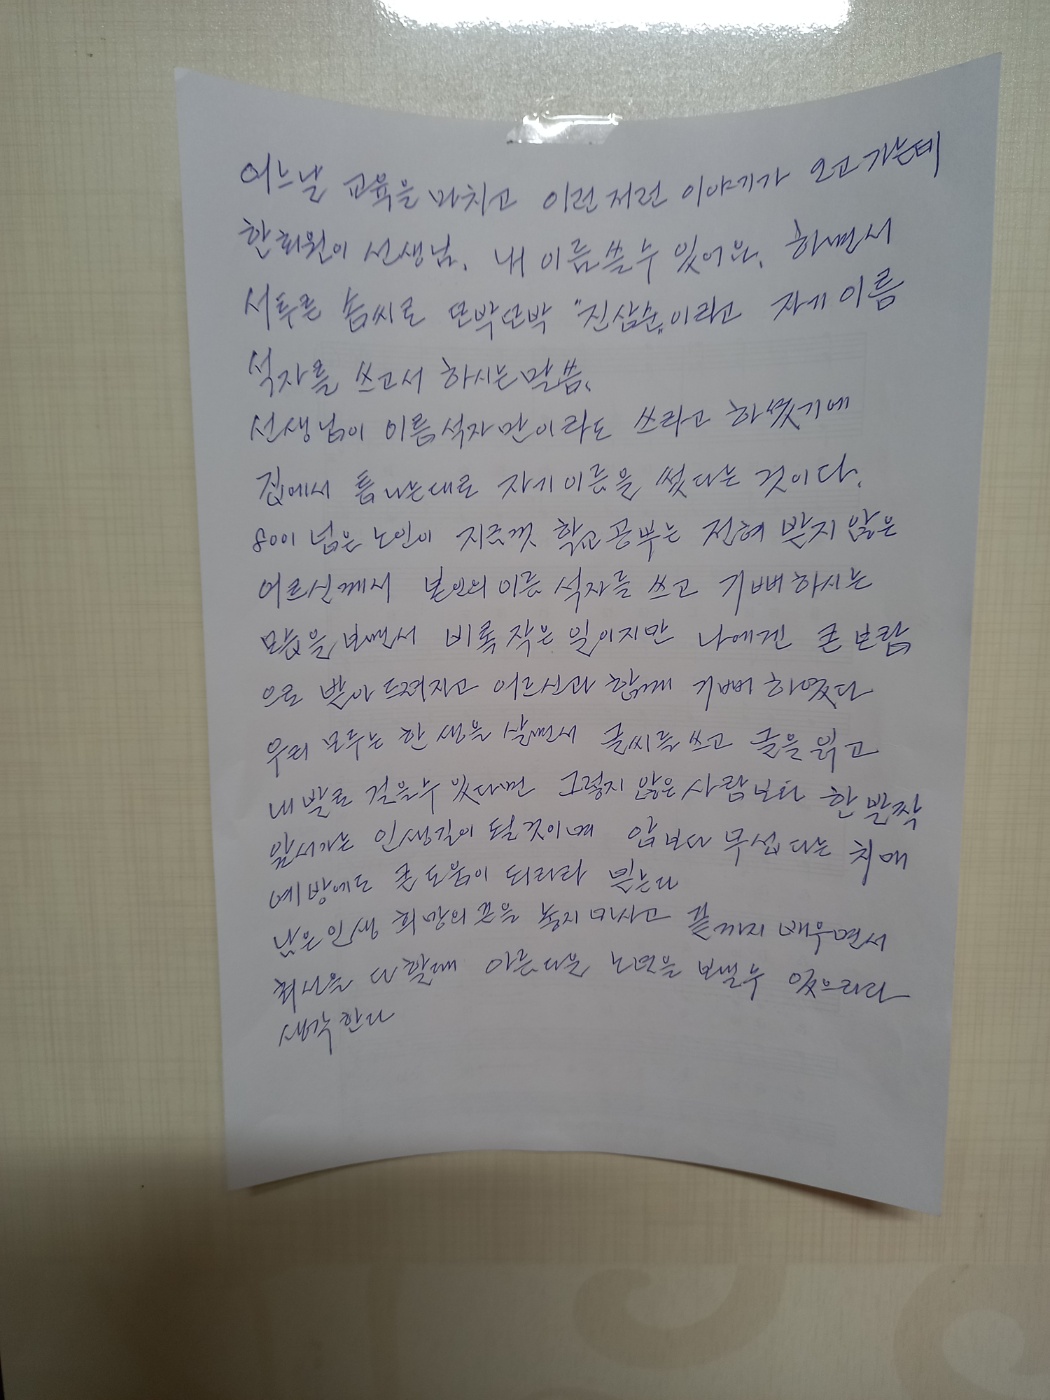 어느날 교육을 마치고 이런저런 이야기가 오고가는데
한회원이 선생님. 내 이름쓸수 있어요. 하면서
서투른 솜씨로 또박또박 "진삼순"이라고 자기이름
석자를 쓰고서 하시는말씀.
선생님이 이름석자만이라도 쓰라고 하셨기에
집에서 틈나는대로 자기이름을 썼다는 것이다.
80이 넘은 노인이 지금껏 학교공부는 전혀 받지 않은
어르신께서 본인의 이름 석자를 쓰고 기뻐하시는
모습을 보면서 비록 작은 일이지만 나에겐 큰 보람
으로 받아 드려지고 어르신과 함께 기뻐 하였다
우리 모두는 한 생을 살면서 글씨를 쓰고 글을 읽고
내 발로 걸을수 있다면 그렇지 않은 사람보다 한 발짝
앞서가는 인생길이 될것이며 암보다 무섭다는 치매
예방에도 큰도움이 되리라 믿는다
남은인생 희망의 끈을 놓지 마시고 끝까지 배우면서
최선을 다할때 아름다운 노년을 보낼수 있으리라
생각한다